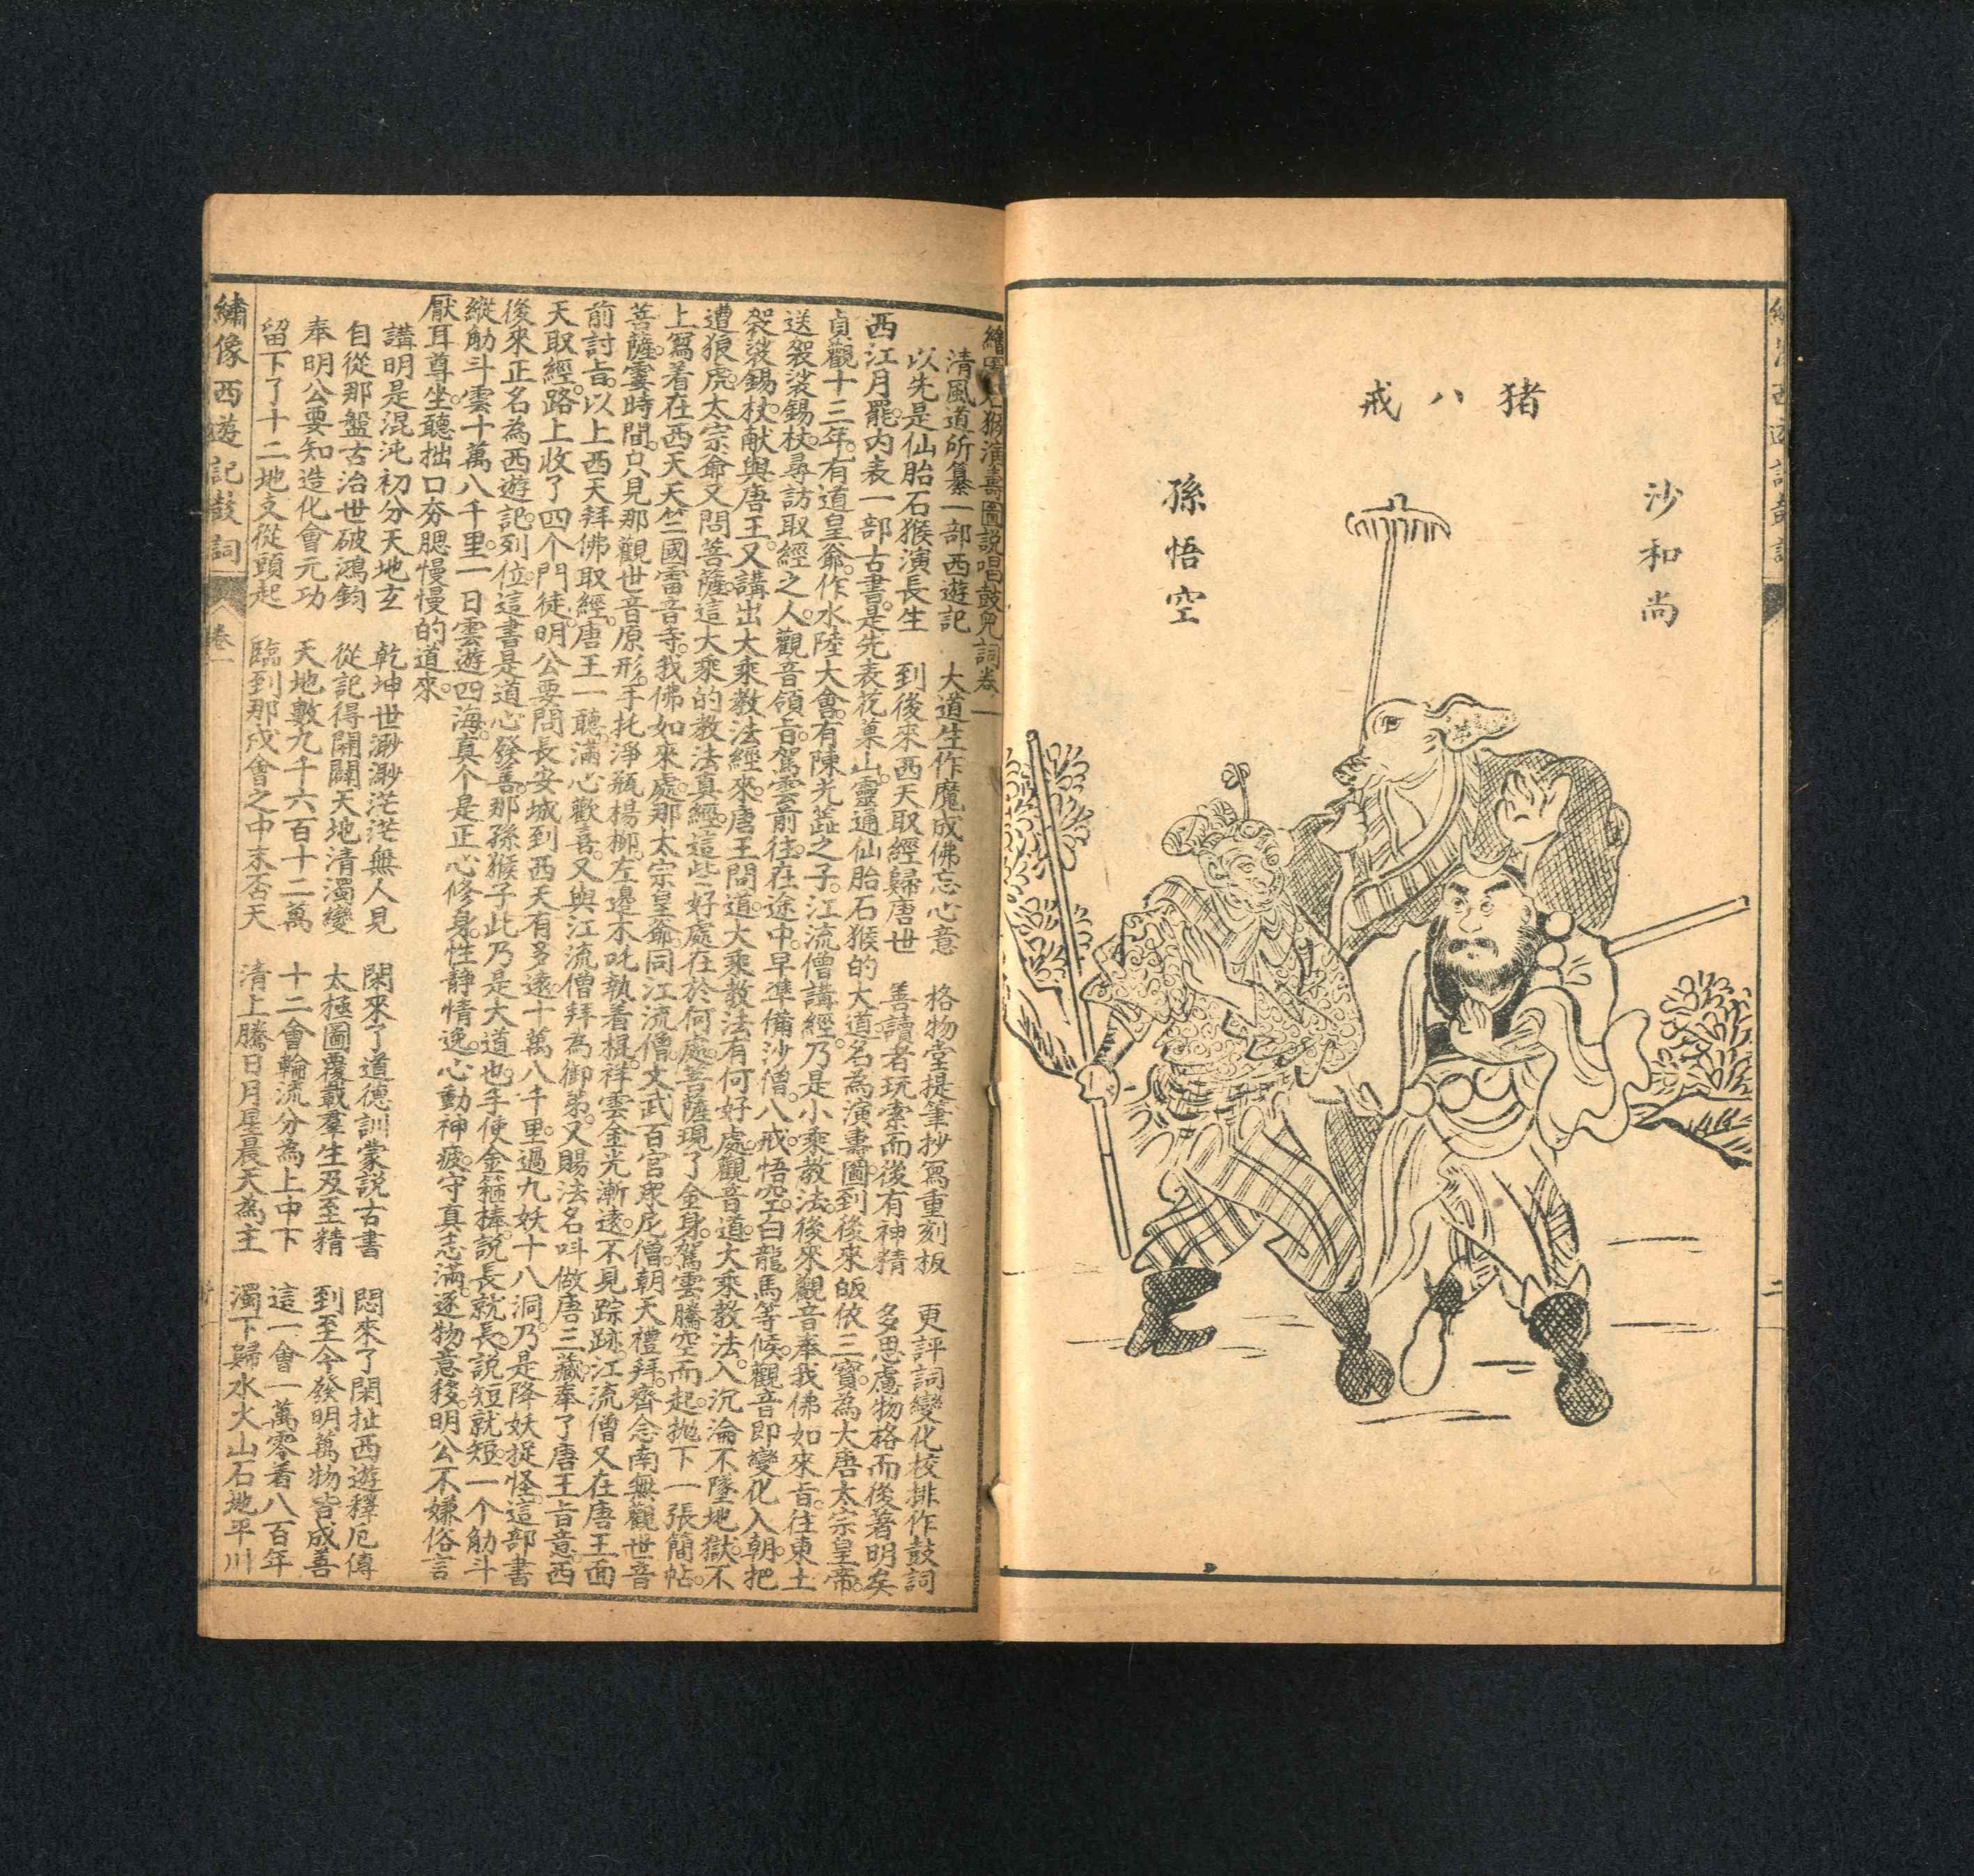 猪八戒
沙和尚
孫悟空
二
猴演壽圖說唱鼓兒詞卷一
清風道所纂一部西遊記 大道生作魔成佛忘心意 格物堂提筆抄寫重刻板 更評詞變化校排作鼓詞
以先是仙胎石猴演長生 到後來西天取經歸唐世 善讀者玩索而後有神精 多思慮物格而後著明矣
西江月罷内表一部古書是先表花菓山靈通仙胎石猴的大道名為演壽圖到後來皈依三寶為大唐太宗皇帝
貞觀十三年有道皇爺作水陸大會有陳光蕋之子江流僧講經乃是小乘教法後來觀音奉我佛如來旨往東土
送袈裟錫杖尋訪取經之人觀音領旨駕雲前往在途中早準備沙僧八戒悟空白龍馬等候觀音即變化入朝把
袈裟錫杖献與唐王又講出大乘教法經來唐王問道大乘教法有何好處觀音道大乘教法入沉淪不墜地獄不
遭狼虎太宗爺又問菩薩這大乘的教法真經這些好處在於何處菩薩現了金身駕雲騰空而起抛下一張簡帖
上寫着在西天天竺國雷音寺我佛如來處那太宗皇爺同江流僧文武百官衆尼僧朝天禮拜齊念南無觀世音
菩薩霎時間只見那觀世音原形手托淨瓶楊柳左邊木吒執着棍祥雲金光漸遠不見踪跡江流僧又在唐王面
前討旨以上西天拜佛取經唐王一聽滿心歡喜又與江流僧拜為御弟又賜法名呌做唐三藏奉了唐王旨意西
天取經路上收了四个門徒明公要問長安城到西天有多遠十萬八千里過九妖十八洞乃是降妖捉怪這部書
後來正名為西遊記列位這書是道心發善那孫猴子此乃是大道也手使金箍棒說長就長說短就短一个觔斗
縱觔斗雲十萬八千里一日雲遊四海真个是正心修身性靜情逸心動神疲守真志滿逐物意移明公不嫌俗言
厭耳尊坐聽拙口夯腮慢慢的道來
講明是混沌初分天地玄 乾坤世渺渺茫茫無人見 閑來了道德訓蒙説古書 悶來了閑扯西遊釋厄傳
自從那盤古治世破鴻鈞 從記得開闢天地清濁變 太極圖覆載羣生及至精 到至今發明萬物皆成善
奉明公要知造化會元功 天地數九千六百十二萬 十二會輪流分為上中下 這一會一萬零着八百年
留下了十二地支從頭起 臨到那戌會之中末否天 清上騰日月星晨天為主 濁下歸水火山石地平川
繡像西遊記鼓詞 卷一